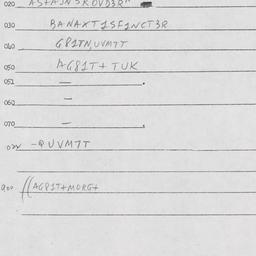 020 ASTAJNSKOVD3R"
030 BANAXT1SF1NCT3R
040 G81TN,UVM7T
050 AG81T+TUK
051 — .
060 —
070 — .
-QUVM7T
900 ((AG81T+MORG+